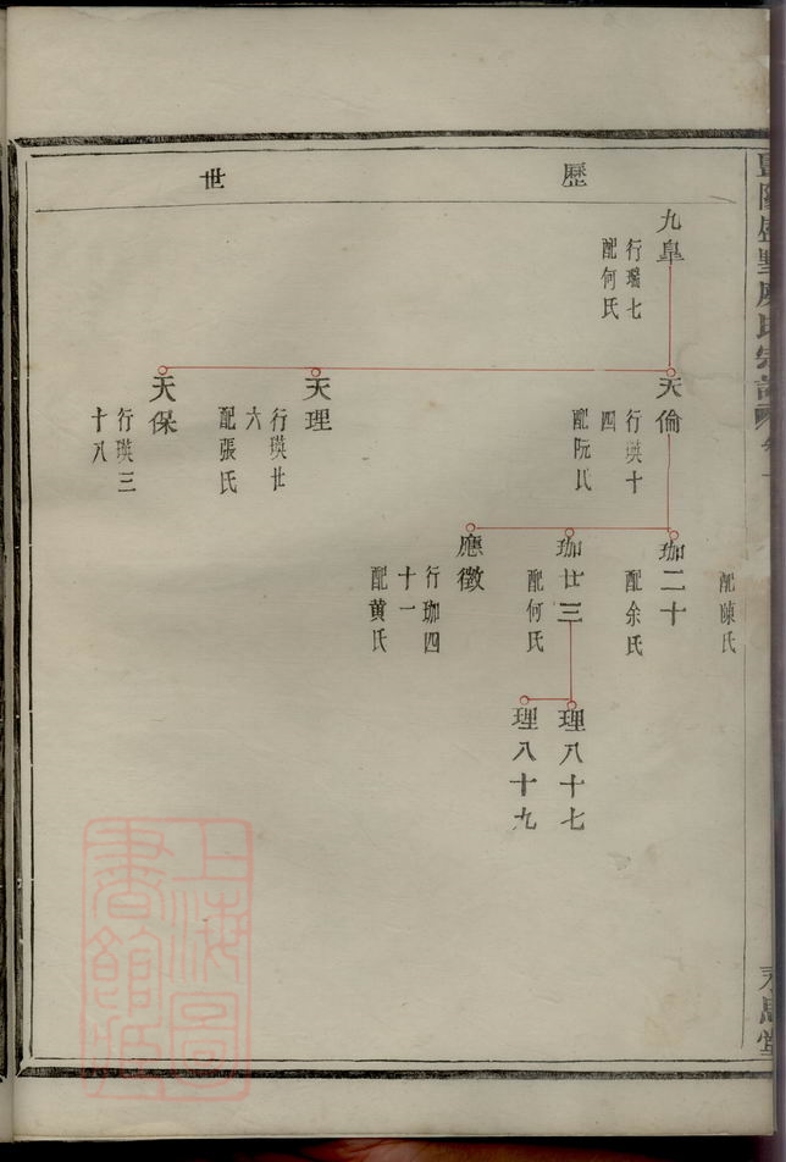 歷
世
九臯
行瑞七
配何氏
天倫
行瑛十
四
配阮氏
天理
行瑛廿
六
配張氏
天保
行瑛三
十八
配陳氏
珈二十
配余氏
珈廿三
配何氏
應徵
行珈四
十一
配黄氏
理八十七
理八十九
上海圖
書館藏